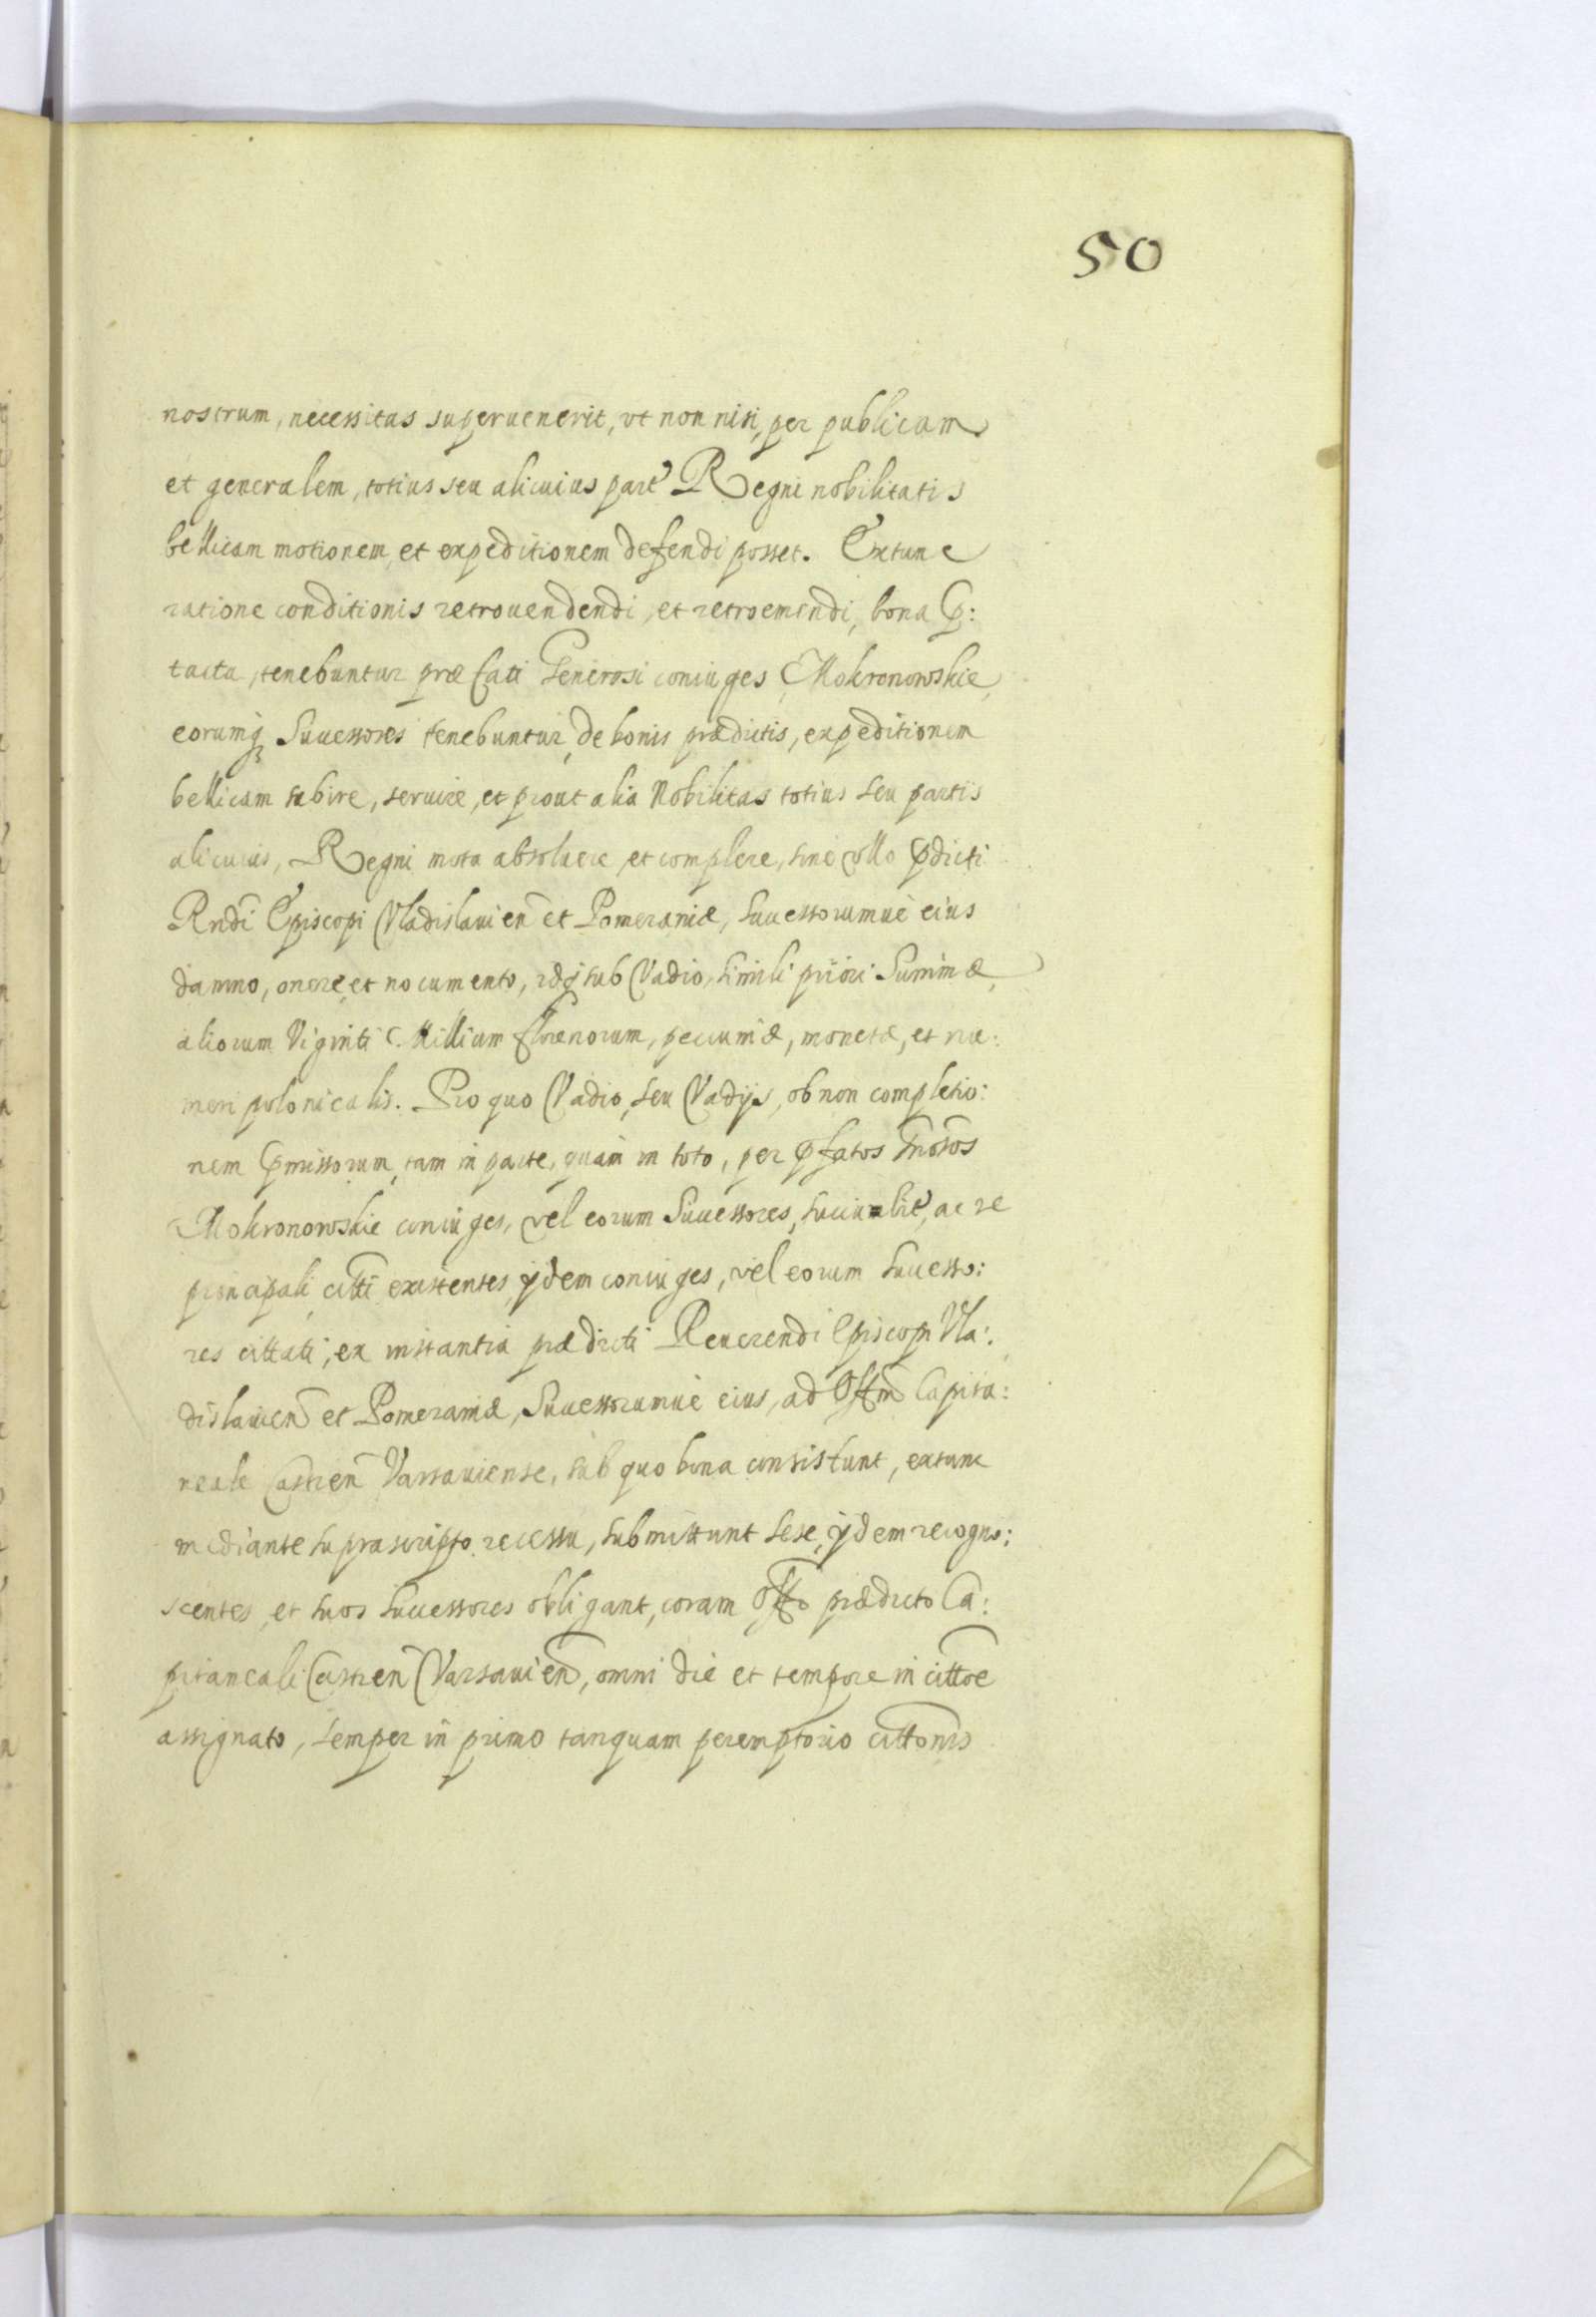 50
nostrum, necessitas superuenerit, vt non nisi, per publicam
et generalem, totius seu alicuius part Regni nobilitatis
bellicam motionem, et expeditionem defendi posset. Extunc
ratione conditionis retrouendendi, et retroemendi, bona p:
tacta, tenebuntur præfati Generosi coniuges Mokronowskie,
eorumq Successores tenebuntur, de bonis prædictis, expeditionem
bellicam subire, seruire, et prout alia Nobilitas totius seu partis
alicuius, Regni mota absoluere et complere, sine vllo pdicti
Rndi Episcopi Vladislauien et Pomeraniæ, Successorumue eius
damno, onere, et nocumento, idq sub Vadio, simili priori Summæ,
aliorum Viginti Millium florenorum, pecuniæ, monetæ, et nu:
meri polonicalis. Pro quo Vadio, seu Vadijs, ob non completio:
nem pmissorum, tam in parte, quam in toto, per pfatos Gnosos
Mokronowskie coniuges, vel eorum Successores, ac re
principali citti existentes, ijdem coniuges, vel eorum Successo:
res cittati, ex instantia prædicti Reuerendi Episcopi Vla:
dislauien et Pomeraniæ, Successorumue eius, ad Offm Capita:
neale Castren Varsauiense, sub quo bona consistunt, extunc
mediante suprascripto recessu, submittunt sese, ijdem recogno:
scentes, et suos Successores obligant, coram Offo prædicto Ca:
pitaneali Castren Varsauien, omni die et tempore in cittoe
assignato, semper in primo tanquam peremptorio cittonis